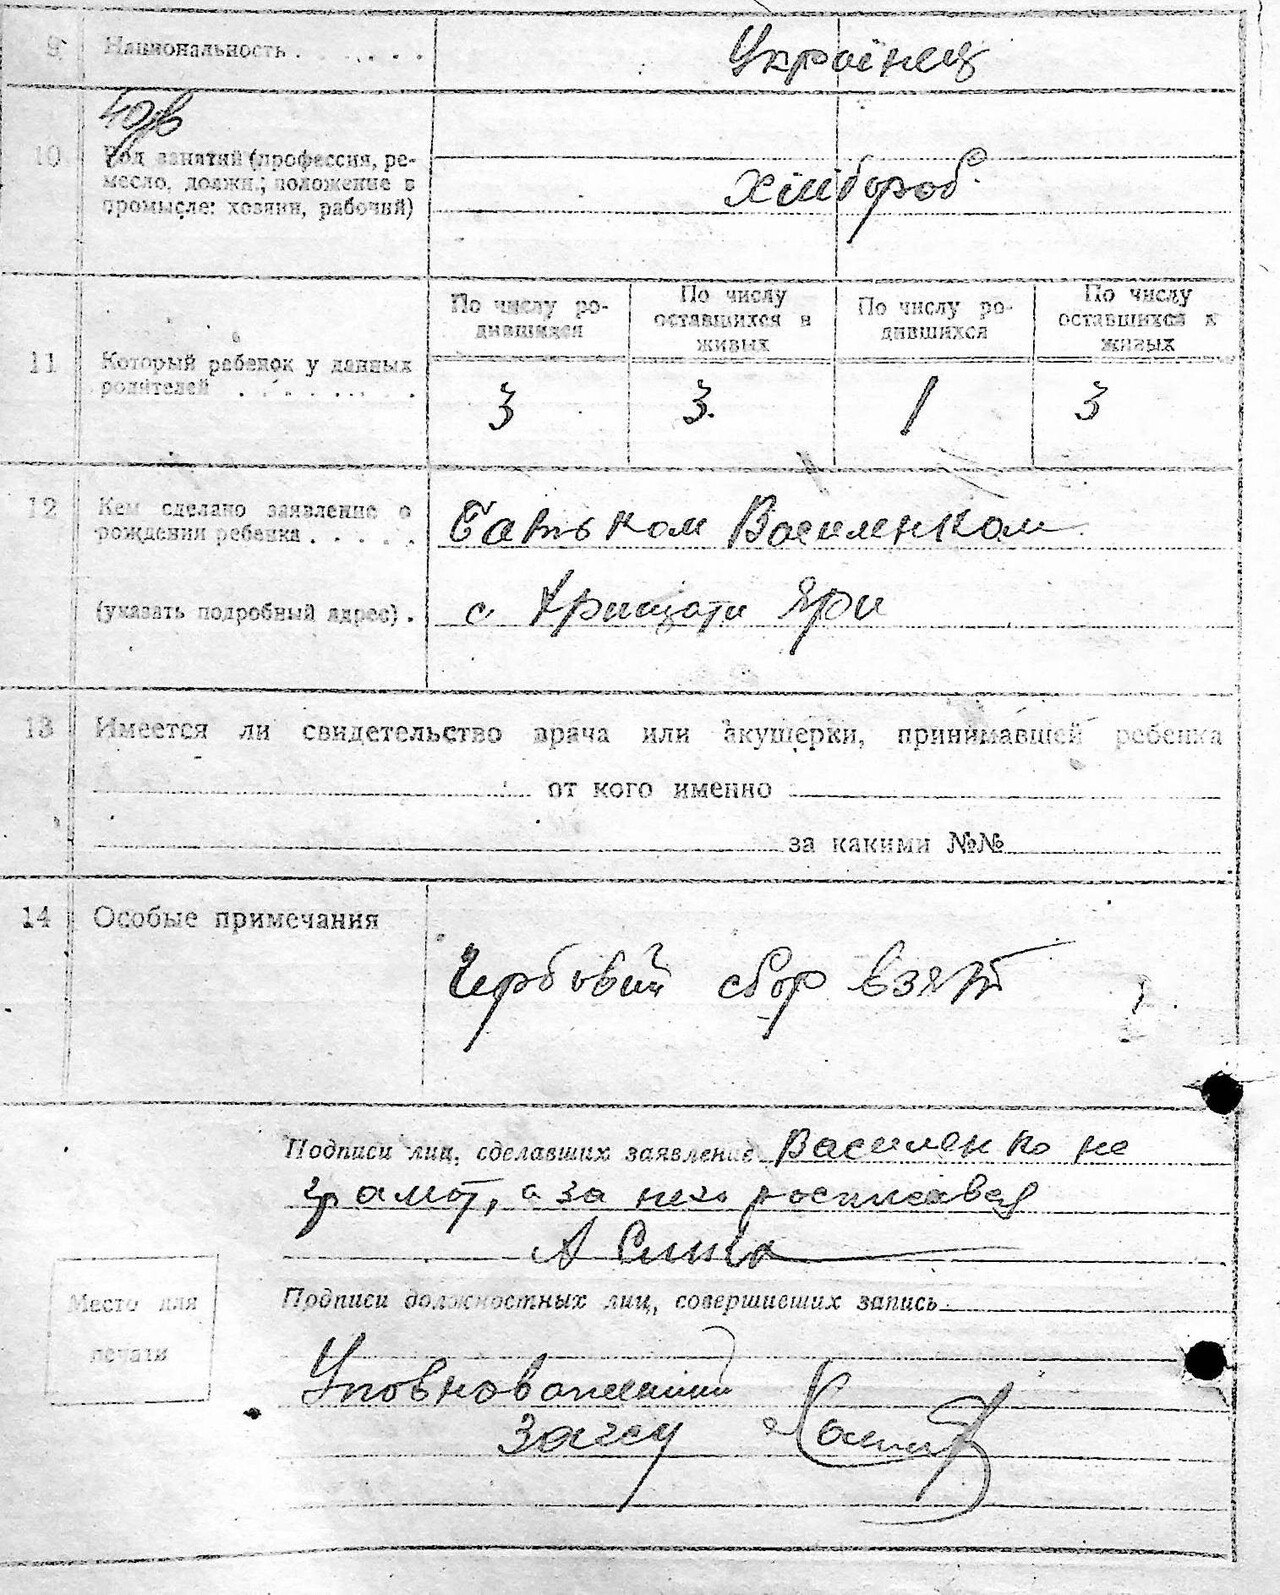 9 Национальность . . . . . . Українец
10 Род занятий (профессия, ре-
месло, должн.; положение в
промысле: хозяин, рабочий)
хлібороб.
11 Который ребенок у данных
родителей . . . . . . . .
По числу ро-
дившихся
По числу
оставшихся в
живых
По числу ро-
дившихся
По числу
оставшихся в
живых
3 3. 1 3
12 Кем сделано заявление о
рождении ребенка . . . . .
Батьком Василенком
(указать подробный адрес) . с. Хрищати Яри
13 Имеется ли свидетельство врача или акушерки, принимавшей ребенка
от кого именно
за какими №№
14 Особые примечания
Гербовий сбор взят
Подписи лиц, сделавших заявление Василенко не
грамот, а за него росписався
А
Место для
печати
Подписи должностных лиц, совершивших запись
Уповноважений
загсу